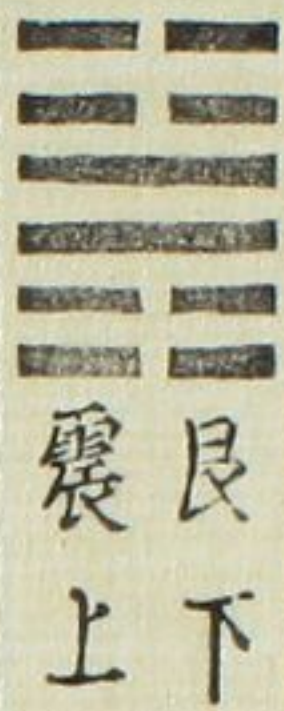 艮下
震上